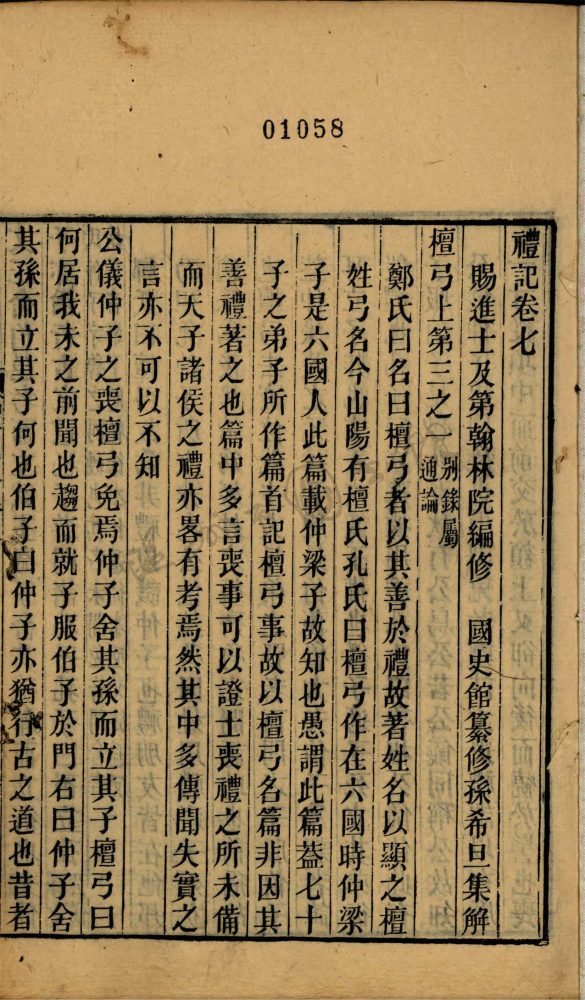 01058
禮記卷七
賜進士及第翰林院編修　國史館纂修孫希旦集解
檀弓上第三之一 別錄屬通論
鄭氏曰名曰檀弓者以其善於禮故著姓名以顯之檀
姓弓名今山陽有檀氏孔氏曰檀弓作在六國時仲梁
子是六國人此篇載仲梁子故知也愚謂此篇葢七十
子之弟子所作篇首記檀弓事故以檀弓名篇非因其
善禮著之也篇中多言喪事可以證士喪禮之所未備
而天子諸侯之禮亦畧有考焉然其中多傳聞失實之
言亦不可以不知
公儀仲子之喪檀弓免焉仲子舍其孫而立其子檀弓曰
何居我未之前聞也趨而就子服伯子於門右曰仲子舍
其孫而立其子何也伯子曰仲子亦猶行古之道也昔者